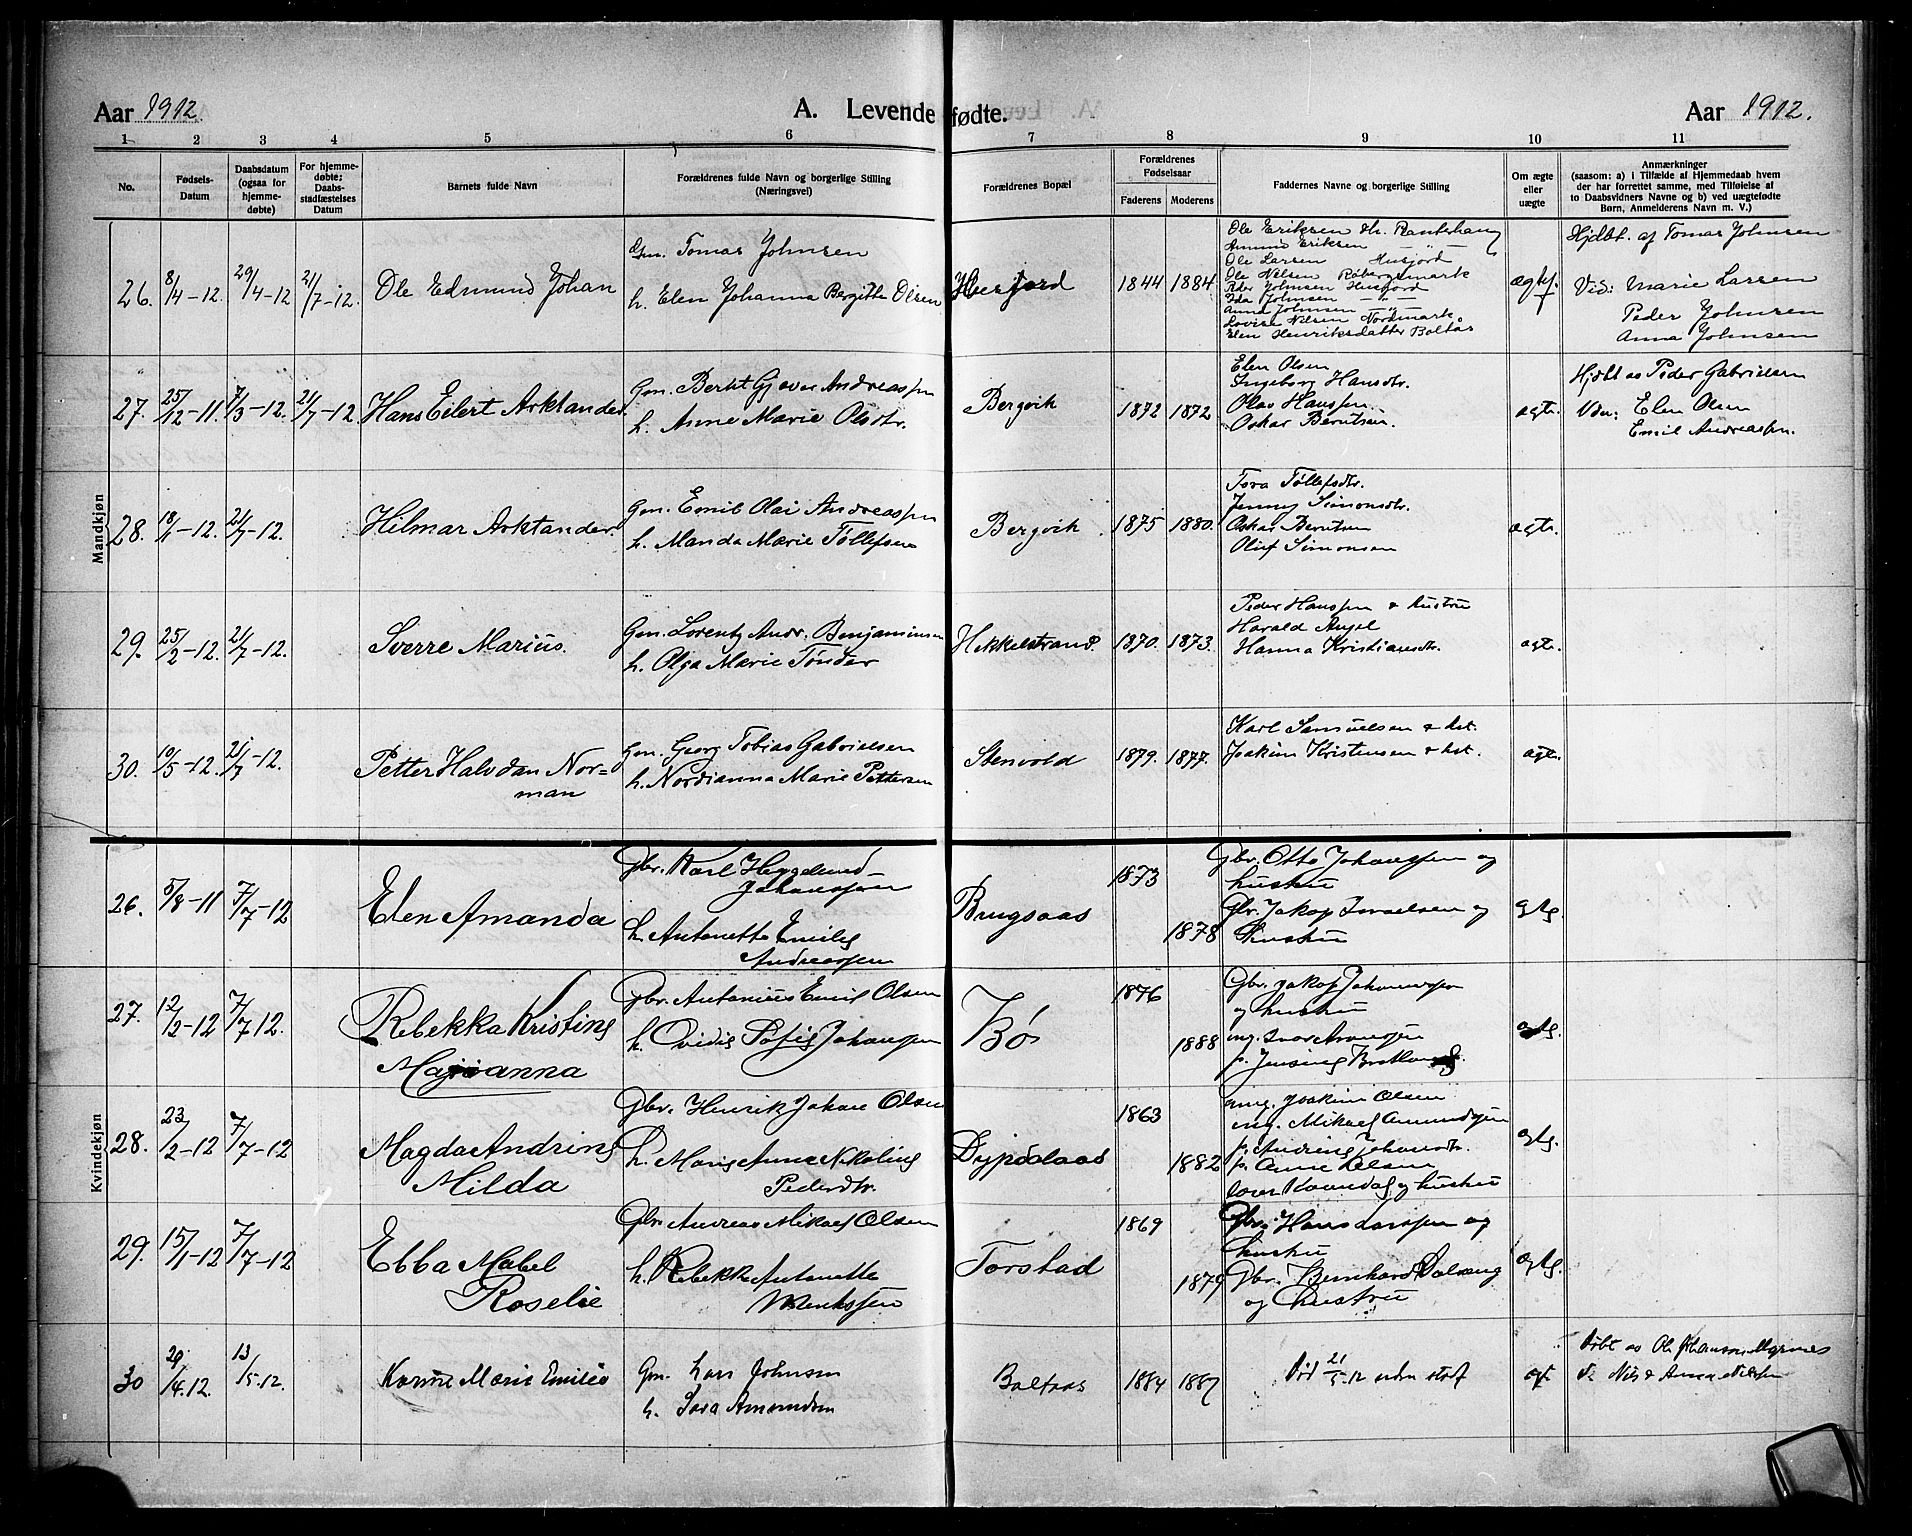 Aar 1912. A. Levende fødte. Aar 1912.
1 2 3 4 5 6 7 8 9 10 11
No.
Fødsels-
Datum
Daabsdatum
(ogsaa for
hjemme-
døbte)
For hjemme-
døbte;
Daabs-
stadfæstelses
Datum
Barnets fulde Navn
Forældrenes fulde Navn og borgerlige Stilling
(Næringsvei)
Forældrenes Bopæl
Forældrenes
Fødselsaar
Faderens Moderens
Faddernes Navne og borgerlige Stilling
Om ægte
eller
uægte
Anmærkninger
(saasom: a) i Tilfælde af Hjemmedaab hvem
der har forrettet samme, med Tilføielse af
to Daabsvidners Navne og b) ved uægtefødte
Børn, Anmelderens Navn m. V.)
Mandkjøn
26. 8/4-12. 29/4-12 21/7-12. Ole Edmund Johan
Gm. Tomas Johnsen
h. Elen Johanna Bergitte Olsen
Husjord 1844 1884
Ole Eriksen
Amund Eriksen — „ —
Ole Larsen Husjord
Ole Nilsen Røbergsmark
Peder Johnsen Husjord
Ida Johnsen — „ —
Anna Johnsen — „ —
Lovise Nilsen Nordmark.
Elen Henriksdatter Baltås
ægtef.
Hjdbt. af Tomas Johnsen
Vid: Marie Larsen
Peder Johnsen
Anna Johnsen
27. 25/12-11. 7/3-12. 21/7-12 Hans Eilert Arktander.
Gm. Berht Gjøver Andreassen
h. Anne Marie Olsdtr.
Bergvik 1872 1872
Elen Olsen
Ingeborg Hansdtr.
Olav Hanssen.
Oskar Berntsen.
ægte.
Hjdbt av Peder Gabrielsen
Vidn: Elen Olsen
Emil Andreassen.
28. 18/1-12. 21/7-12. Hilmar Arktander.
Gm. Emil Olai Andreassen
h. Manda Marie Tøllefsen
Bergvik. 1875 1880.
Tora Tøllefsdtr.
Jenny Simonsdtr.
Oskar Berntsen
Oluf Simonsen
ægte.
29. 25/2-12. 21/7-12. Sverre Marius.
Gm. Lorentz Andr. Benjaminsen
h. Olga Marie Tønder
Hekkelstrand. 1870. 1873.
Peder Hanssen & hustru
Harald Angel
Hanna Kristiansdtr.
ægte.
30. 10/5-12. 21/7-12. Petter Halvdan Nor=
man
Gm. Georg Tobias Gabrielsen
h. Nordianna Marie Pettersen
Stenvold 1879. 1877.
Karl Samuelsen & hst.
Joakim Kristensen & hst.
ægte.
Kvindekjøn
26. 5/8-11 7/7-12 Elen Amanda
Gbr. Karl Heggelund-
Johanssen
h. Antonette Emilie
Andreassen
Brugsaas 1873 1878
Gbr. Otto Johanssen og
hustru
Gbr. Jakop Israelsen og
hustru
ægte.
27. 12/2-12 7/7-12. Rebekka Kristine
Marianna
Gbr. Antonius Emil Olsen
h. Ovidie Sofie Johanssen
Bø 1876 1888
Gbr. Jakop Johannessen
og hustru
ægte.
28. 23/2-12 7/7-12 Magda Andrine
Milda
Gbr. Henrik Johan Olsen
h. Marie Anna Nikoline
Pedersdtr.
Dypdalaas 1863 1882
ung. Joakim Olsen
ung. Mikael Amundsen
p. Andrine Johansdtr.
p. Anne Nilsen
og hustru
ægte.
29. 15/1-12 7/7-12 Ebba Mabel
Roselie
Gbr. Andreas Mikael Olsen
h. Rebekka Antonette
Markussen
Torstad 1869 1879
Gbr. Hans Larssen og
hustru
Gbr. Bernhard Solvang
og hustru
ægte.
30 29/4.12. 13/5.12. Karine Marie Emilie
Gm. Lars Johnsen
h. Sara Amundsen
Baltaas 1884 1887
Død 21/5-12 uden stadf
ægt.
Døbt av Ole Johansen
V. Nils & Anna Nilssen